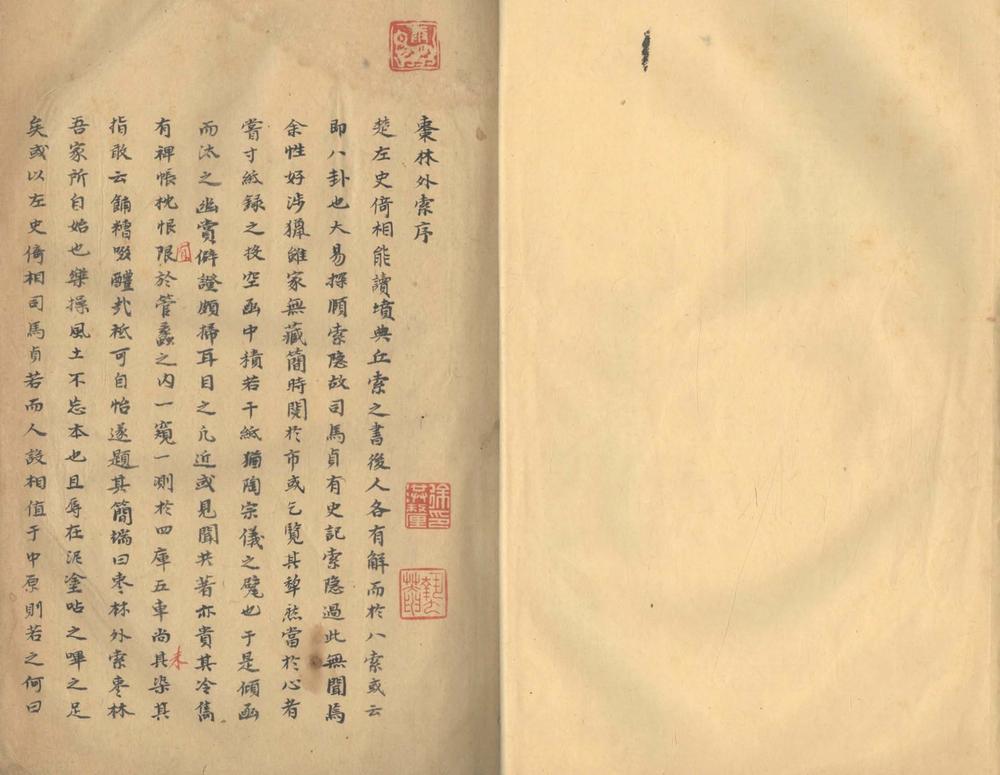 棗林外索序
楚左史倚相能讀墳典丘索之書後人各有解而於八索或云
即八卦也大易探賾索隐故司馬貞有史記索隐過此無聞焉
余性好涉獵雖家無藏簡時閱於市或乞覽其犂然當於心者
嘗寸紙録之投空函中積若干紙猶陶宗儀之甓也于是傾函
而汰之幽賞僻證頗掃耳目之凢近或見聞共著亦貴其冷雋
有裨帳枕恨限於管蠡之内一窺一測於四庫五車尚具染其
宜
未
指敢云餔糟啜醴弐袛可自怡遂題其簡端曰枣林外索枣林
吾家所自始也樂操風土不忘本也且辱在泥塗呫之嗶之足
矣或以左史倚相司馬貞若而人設相值于中原則若之何曰